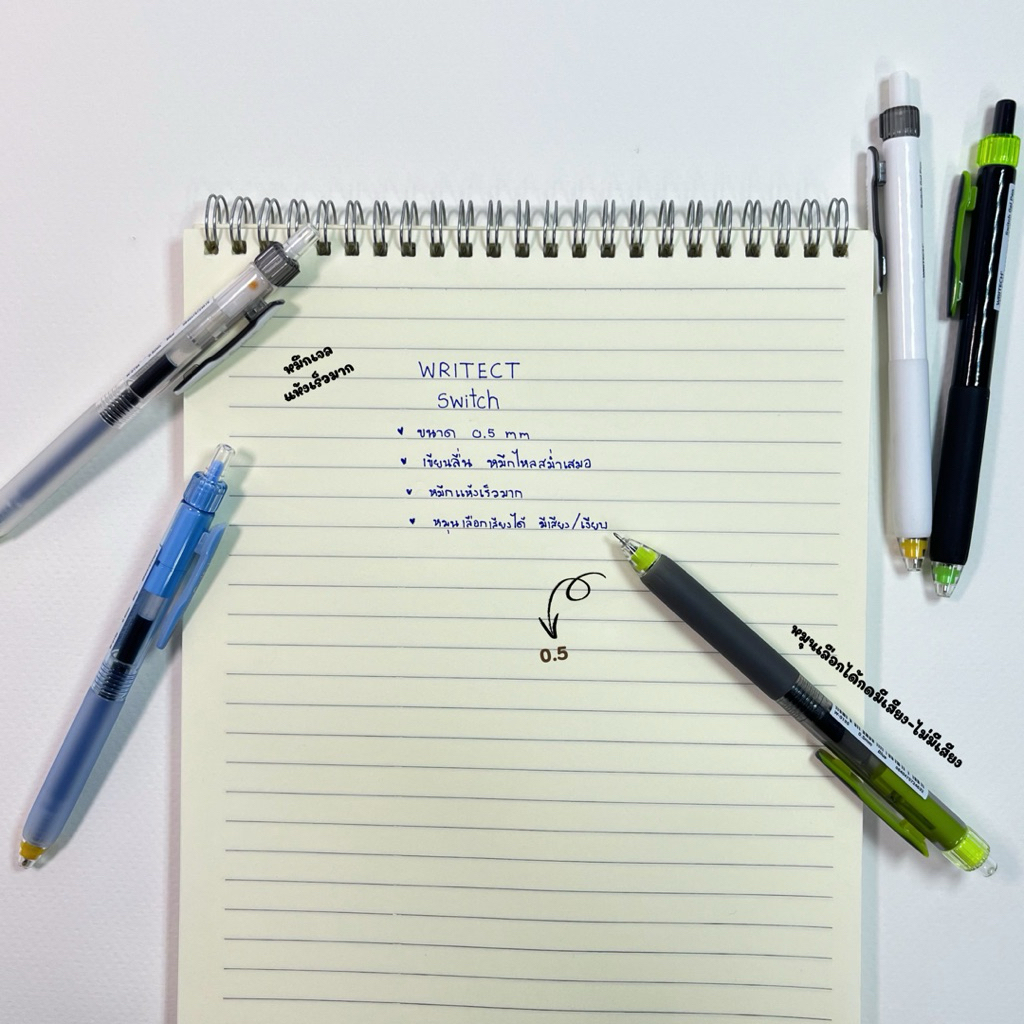 หมึกเจล
แห้งเร็วมาก
WRITECT
Switch
ขนาด 0.5 mm
เขียนลื่น หมึกไหลสม่ำเสมอ
หมึกแห้งเร็วมาก
หมุนเลือกเสียงได้ มีเสียง/เงียบ
0.5
หมุนเลือกได้กดมีเสียง-ไม่มีเสียง
WRITECT